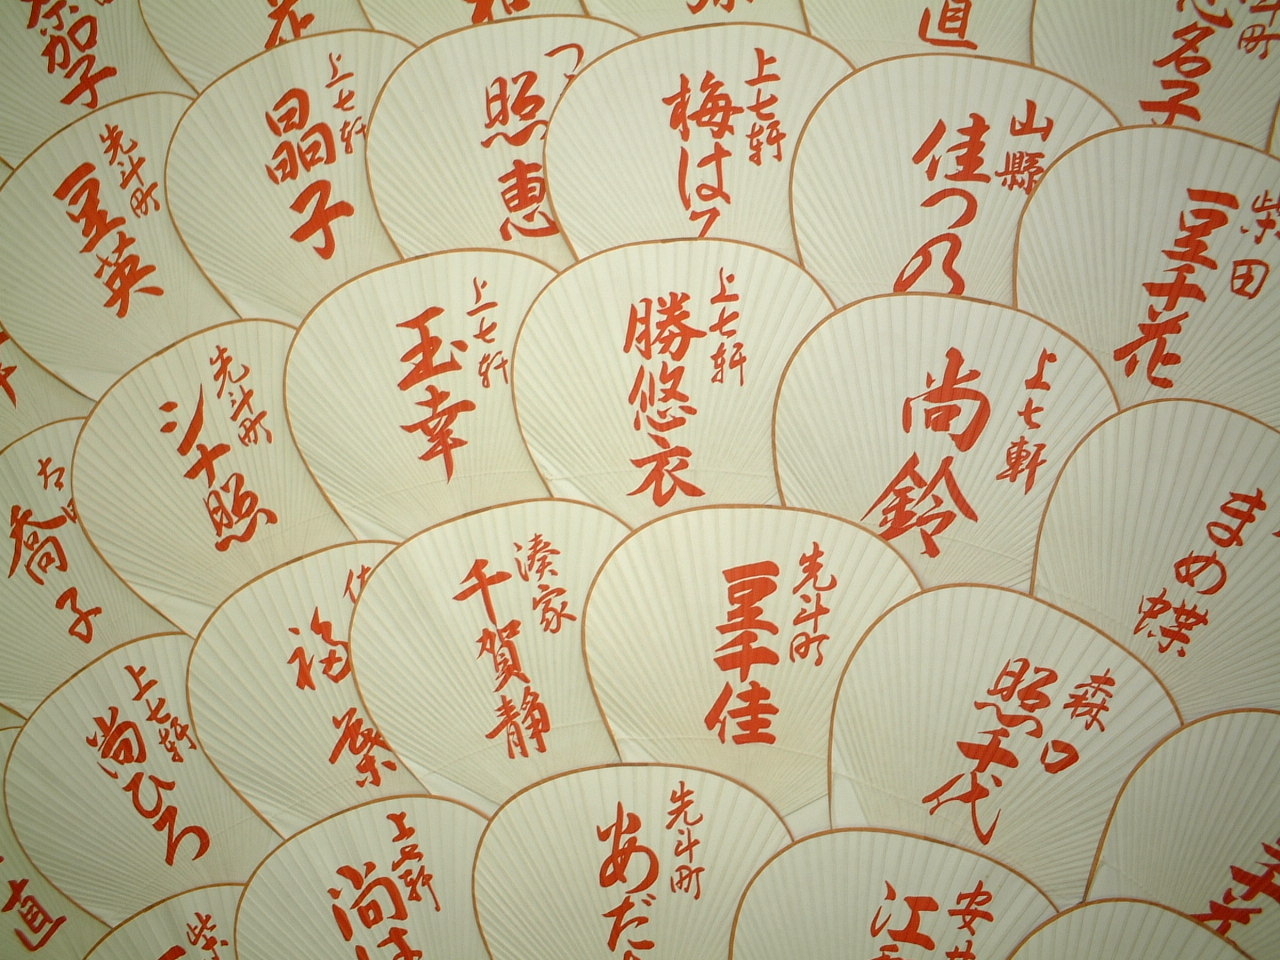 奈加子
直
名子
先斗町
豆英
上七軒
晶子
照恵
上七軒
梅は
山縣
佳つ乃
柴田
豆千花
先斗町
上七軒
玉幸
上七軒
勝悠衣
上七軒
尚鈴
まめ蝶
喬子
福葉
湊家
千賀静
先斗町
豆千佳
森口
照千代
上七軒
尚ひろ
上七軒
尚は
先斗町
あだ
安井
江
直
柴